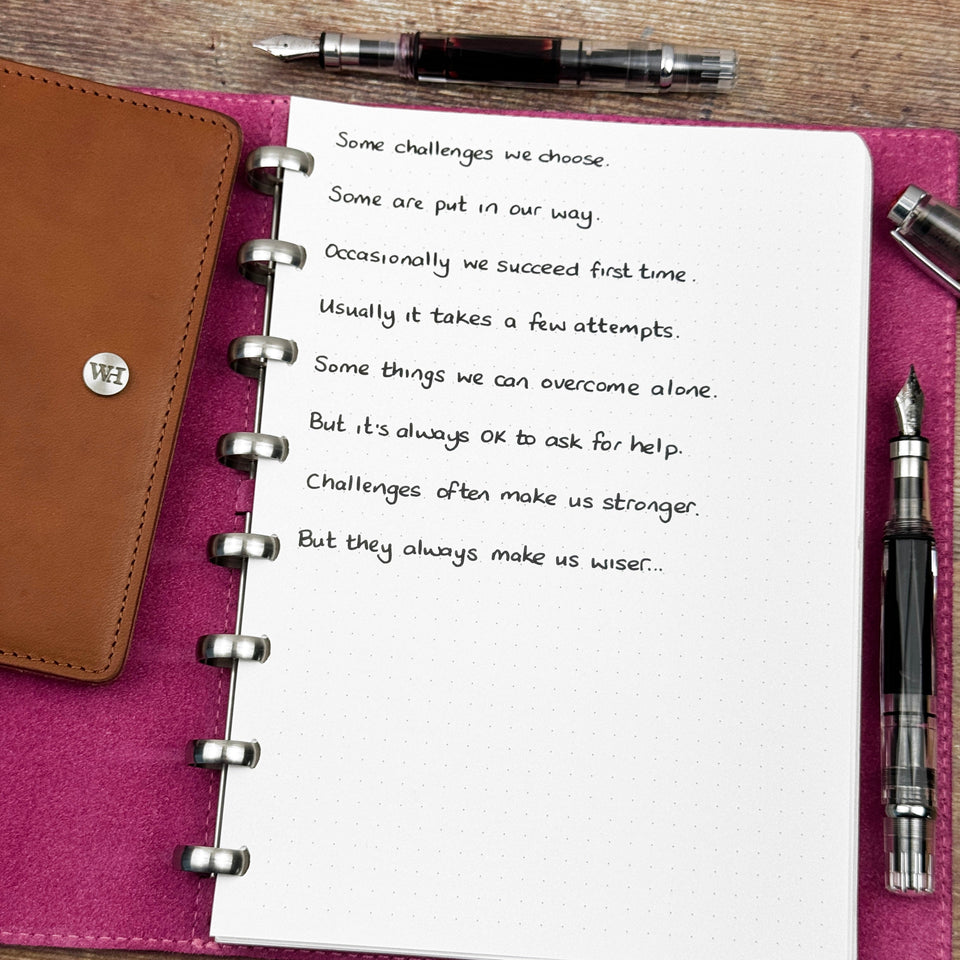 Some challenges we choose.
Some are put in our way.
Occasionally we succeed first time.
Usually it takes a few attempts.
Some things we can overcome alone.
But it's always OK to ask for help.
Challenges often make us stronger.
But they always make us wiser...
WH